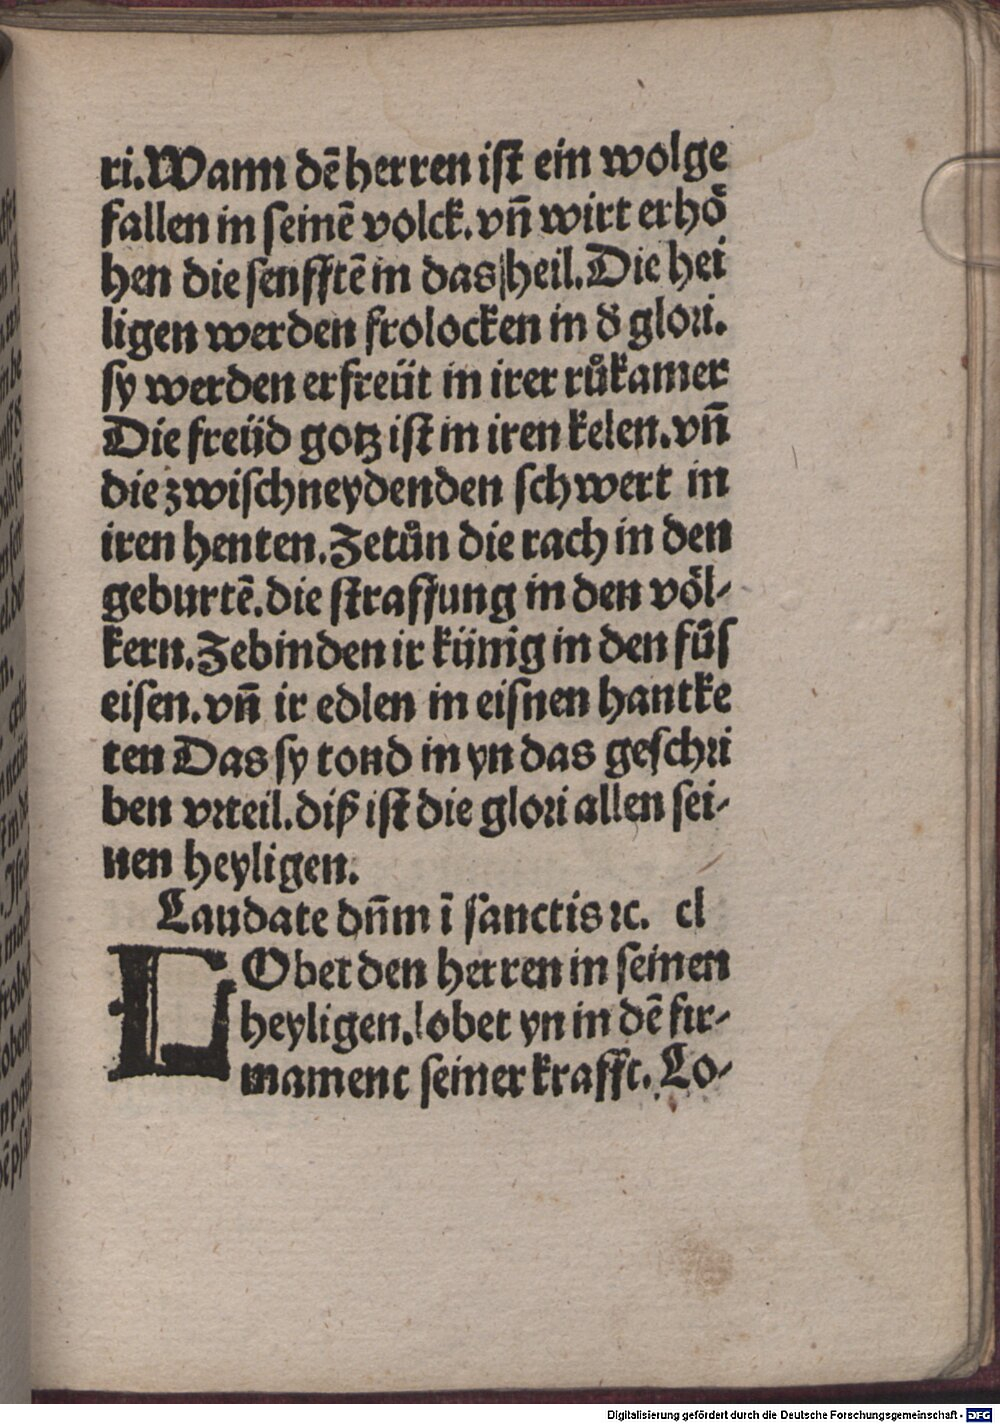 ri. Wann dē herren ist ein wolge
fallen in seinē volck. vn̄ wirt erhoͤ
hen die senfftē in das heil. Die hei
ligen werden frolocken in d̕ glori.
sy werden erfreüt in irer ruͦkamer
Die freüd gotz ist in iren kelen. vn̄
die zwischneydenden schwert in
iren henten. Zetuͦn die rach in den
geburtē. die straffung in den voͤl-
kern. Zebinden ir künig in den fuͦs
eisen. vn̄ ir edlen in eisnen hantke
ten Das sy tond in yn das geschri
ben vrteil. diß ist die glori allen sei-
nen heyligen.
Laudate dn̄m ī sanctis ⁊c. cl
LObet den herren in seinen
heyligen. lobet yn in dē fir-
mament seiner krafft. Lo-
Digitalisierung gefördert durch die Deutsche Forschungsgemeinschaft - DFG